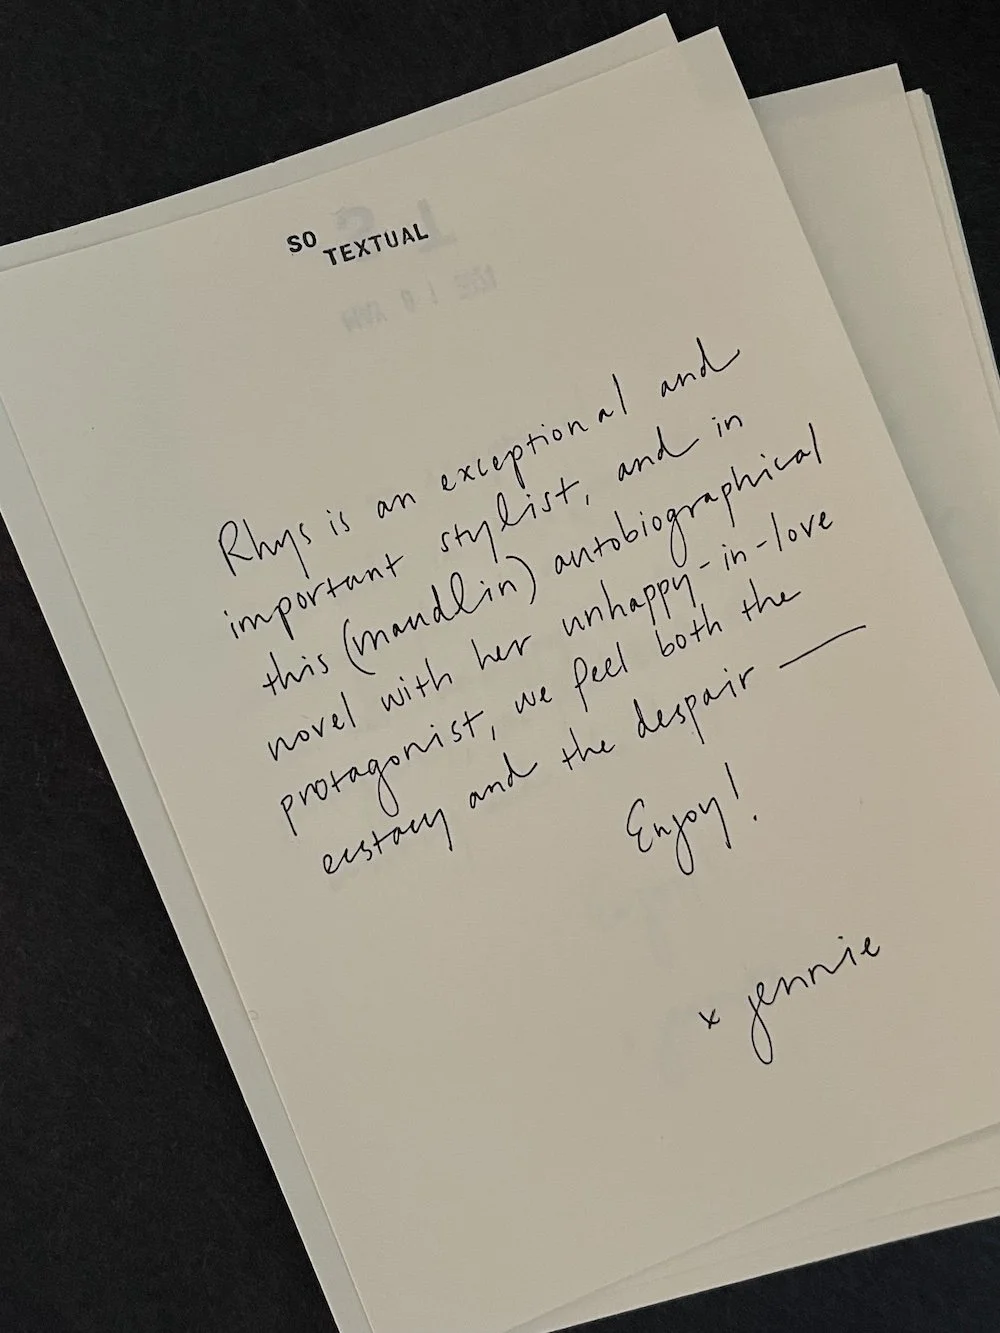 SO TEXTUAL
Rhys is an exceptional and
important stylist, and in
this (maudlin) autobiographical
novel with her unhappy-in-love
protagonist, we feel both the
ecstacy and the despair —
Enjoy!
x jennie